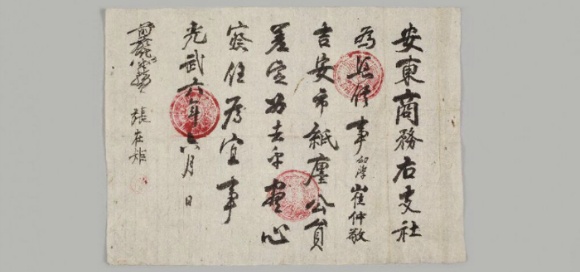 安東商務右支社
為 事 幼學 崔仲敬
吉安市紙廛公員
差定為去乎盡心
察任為宜事
光武六年 月 日
張在